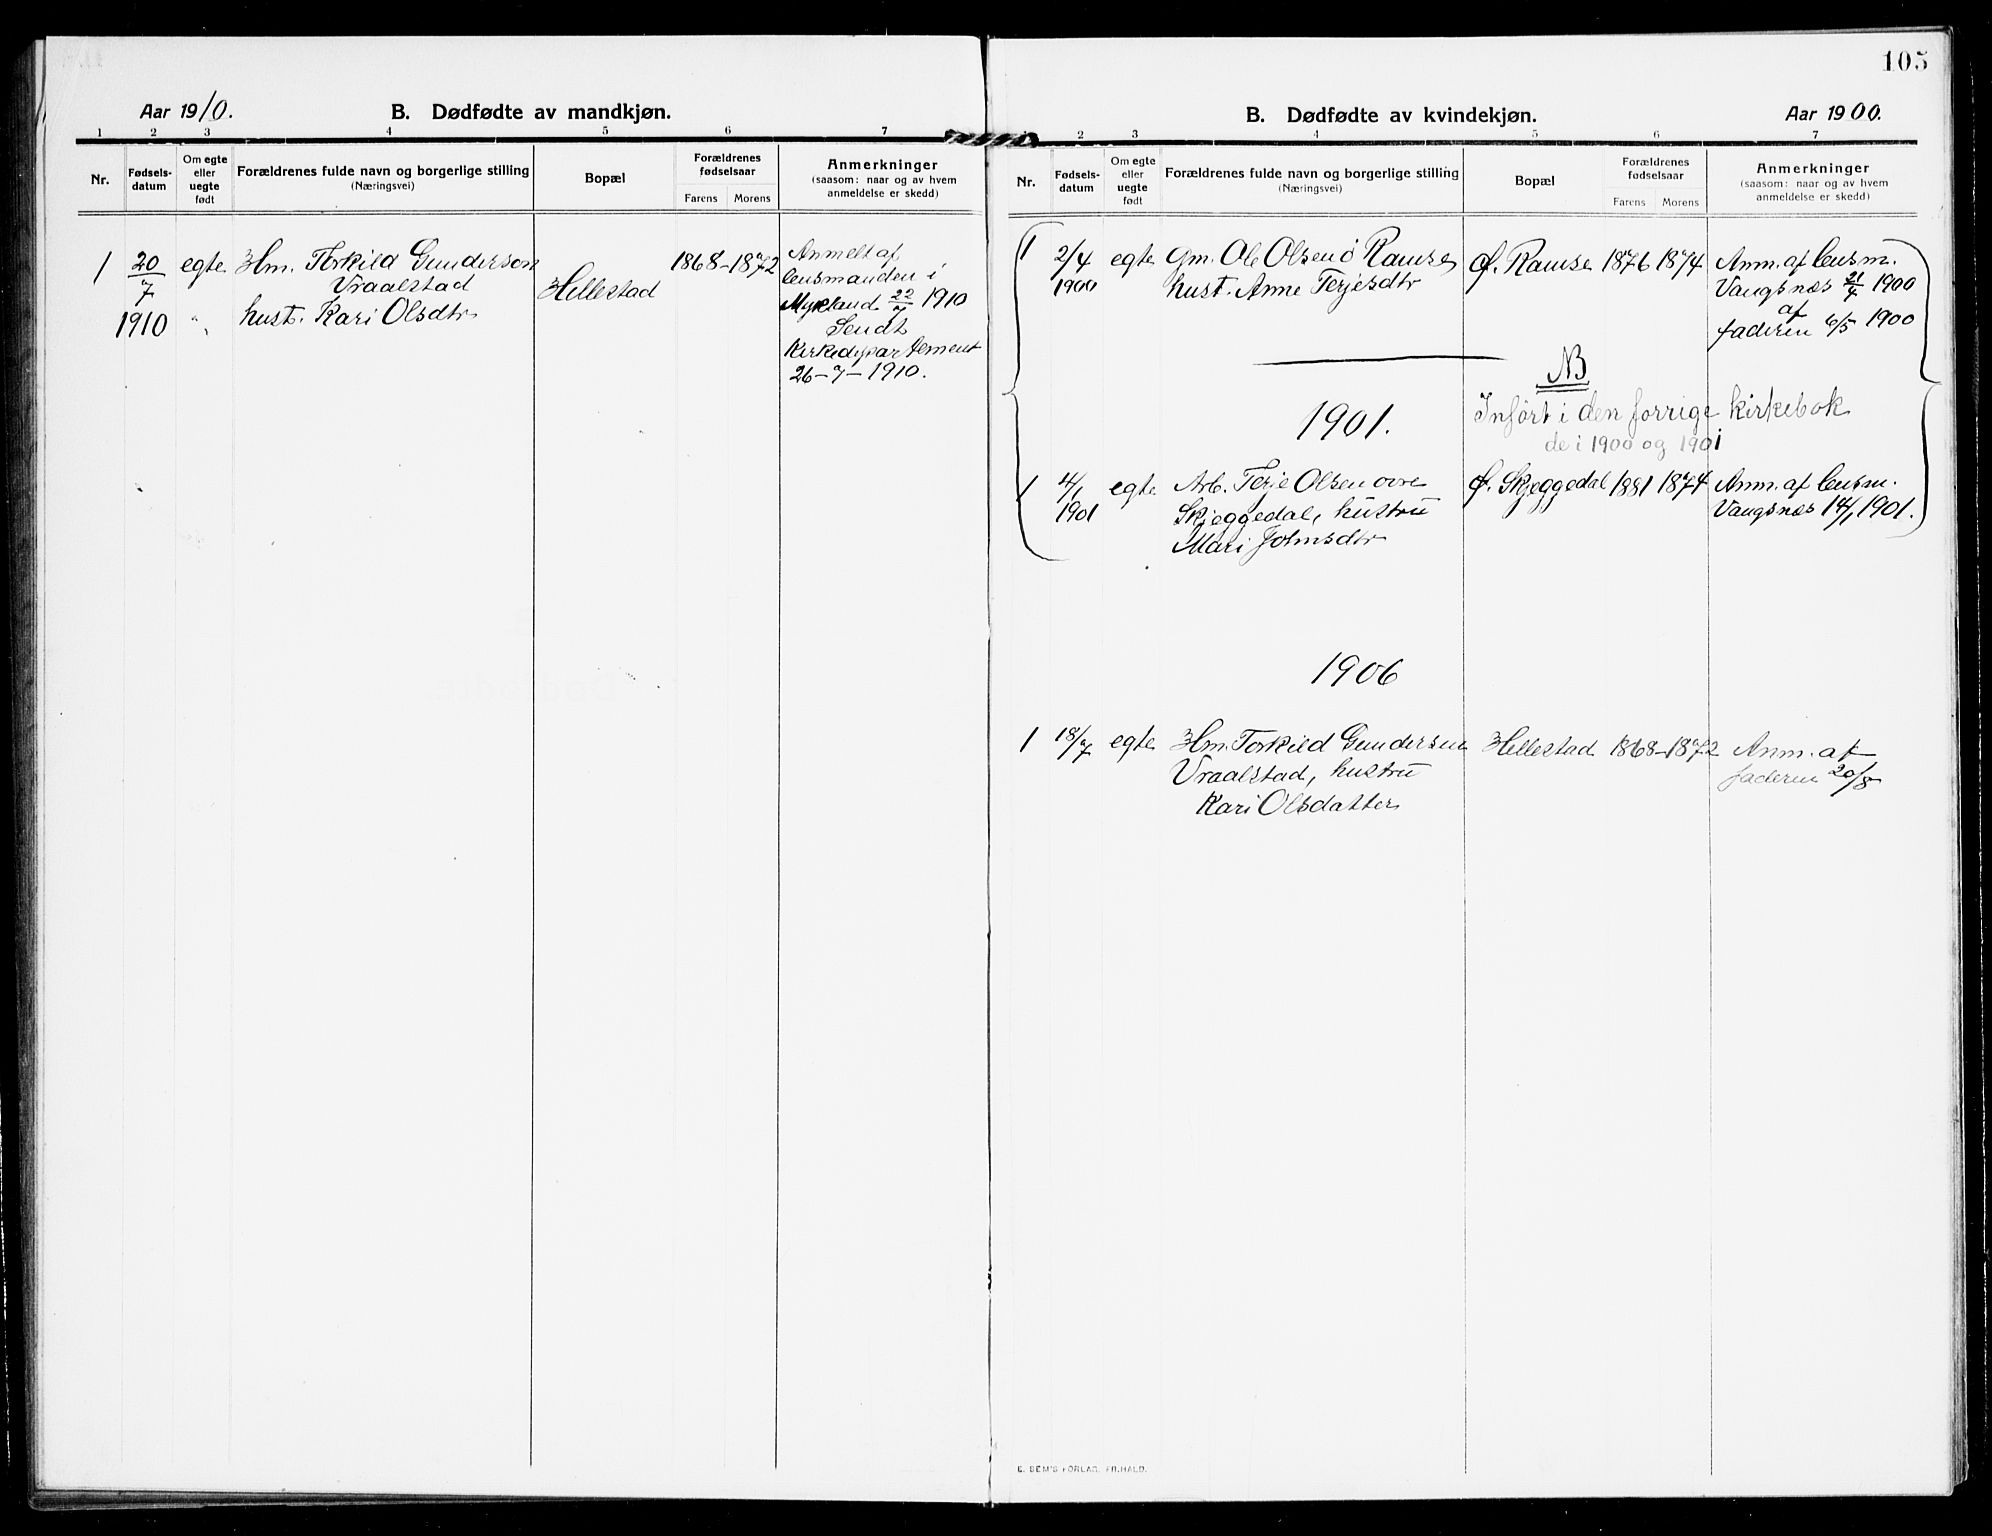 Aar 1910.
B. Dødfødte av mandkjøn.
1 2 3 4 5 6 7
Nr.
Fødsels-
datum
Om egte
eller
uegte
født
Forældrenes fulde navn og borgerlige stilling
(Næringsvei)
Bopæl
Forældrenes
fødselsaar
Farens Morens
Anmerkninger
(saasom: naar og av hvem
anmeldelse er skedd)
1 20/7 1910 egte Hm. Torkild Gunderson
Vraalstad
" hust. Kari Olsdtr
Hellestad
1868-1872
Anmelt af
lensmanden i
Mykland 22/7 1910
Sendt
Kirkedepartement
26-7-1910.
105
B. Dødfødte av kvindekjøn.
Aar 1900.
1 2 3 4 5 6 7
Nr.
Fødsels-
datum
Om egte
eller
uegte
født
Forældrenes fulde navn og borgerlige stilling
(Næringsvei)
Bopæl
Forældrenes
fødselsaar
Farens Morens
Anmerkninger
(saasom: naar og av hvem
anmeldelse er skedd)
1 2/4 1900 egte Gm. Ole Olsen Ø Ramse
hust. Anne Terjesdtr
Ø. Ramse 1876 1874
Anm. af lensm.
Vangsnæs 21/4 1900
af
faderen 6/5 1900
NB
Infört i den forrige kirkebok
de i 1900 og 1901
1901.
1 4/1 1901 egte Arb. Terje Olsen øvre
Skjeggedal, hustru
Mari Johnsdtr
Ø. Skjeggedal 1881 1874
Anm. af lensm.
Vangsnæs 14/1 1901.
1906
1 18/7 egte Hm. Torkild Gundersen
Vraalstad, hustru
Kari Olsdatter
Hellestad 1868-1872
Anm. af
faderen 20/8
E. SEM'S FORLAG. FR.HALD.